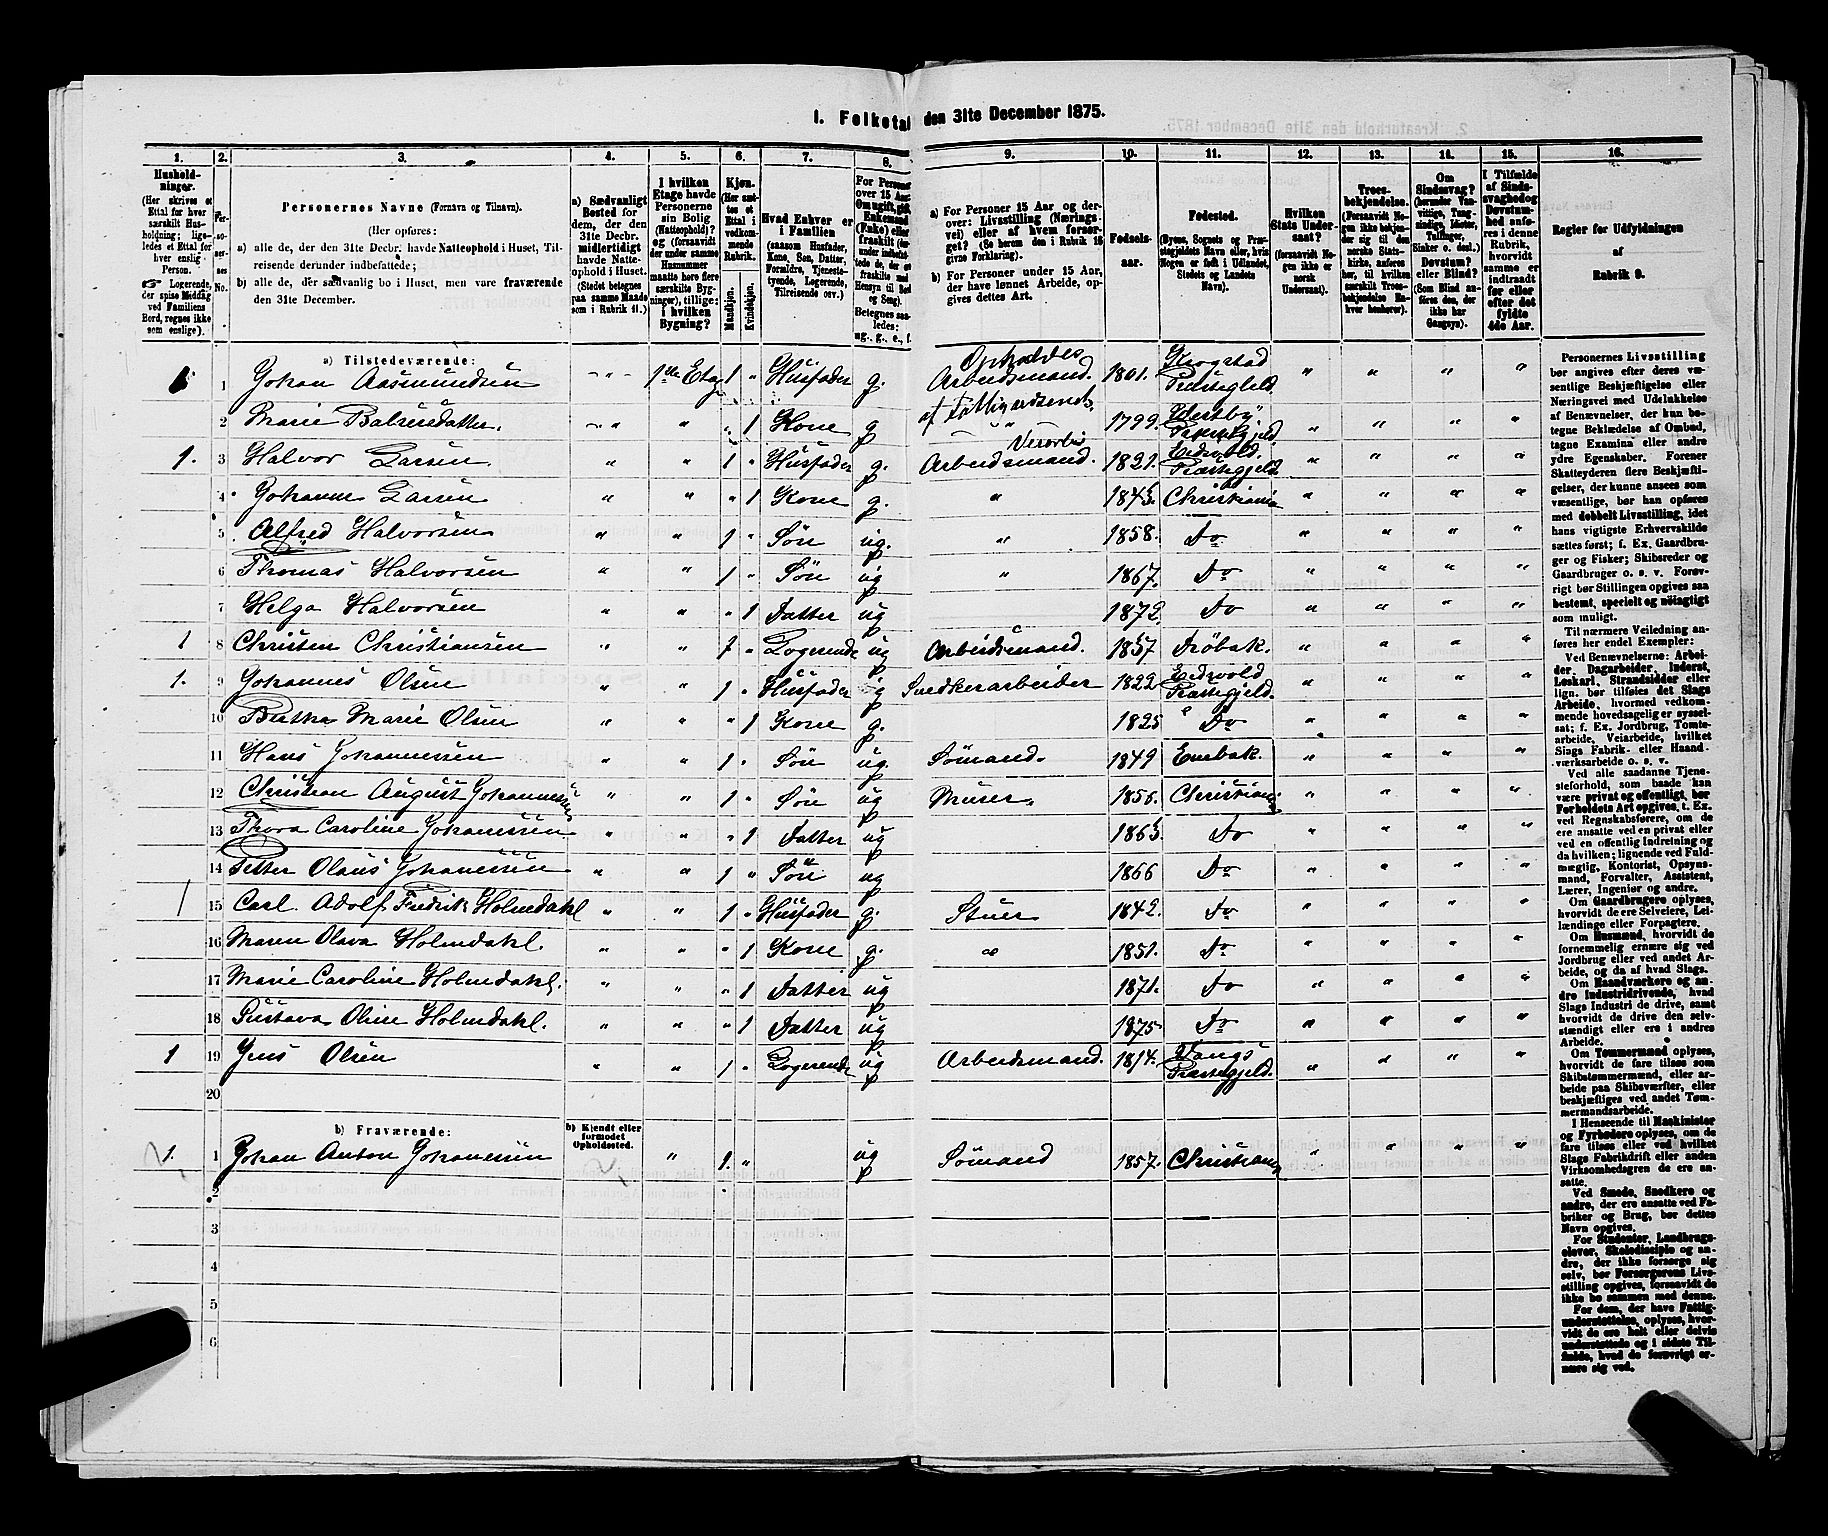 1. Folketal den 31te December 1875.
1. 2. 3. 4. 5. 6. 7. 8. 9. 10. 11. 12. 13. 14. 15. 16.
Hushold-
ninger.
(Her skrives et
Ettal for hver
særskilt Hus-
holdning; lige-
ledes et Ettal for
hver enslig
Person.
Logerende,
der spise Middag
ved Familiens
Bord, regnes ikke
som enslige).
Per-
so-
ner-
nes
No.
Personernes Navne (Fornavn og Tilnavn).
(Her opføres:
a) alle de, der den 31te Decbr. havde Natteophold i Huset, Til-
reisende derunder indbefattede;
b) alle de, der sædvanlig bo i Huset, men vare fraværende
den 31te December.
a) Sædvanligt
Bosted for
dem, der den
31te Decbr.
midlertidigt
havde Natte-
ophold i Huset.
(Stedet betegnes
paa samme Maade
som i Rubrik 11.)
I hvilken
Etage havde
Personerne
sin Bolig
(Natteophold)?
og (forsaavidt
der under samme
Husnummer
maatte høre flere
særskilte Byg-
ninger), tillige:
i hvilken
Bygning?
Kjøn.
(Her sæt-
tes et
Ettal i
vedkom-
mende
Rubrik.
Mandkjøn.
Kvindekjøn.
Hvad Enhver er
i Familien
(saasom Husfader,
Kone, Søn, Datter,
Forældre, Tjeneste-
tyende, Logerende,
Tilreisende osv.)
For Personer
over 15 Aar:
Om ugift, gift,
Enkemand
(Enke) eller
fraskilt
Betegnes saa-
ledes:
ug., g., e., f.
a) For Personer 15 Aar og der-
over: Livsstilling (Nærings-
vei) eller af hvem forsør-
get? (Se herom den i Rubrik 16
givne Forklaring).
b) For Personer under 15 Aar,
der have lønnet Arbeide, op-
gives dettes Art.
Fødsels-
aar.
Fødested.
(Byens, Sognets og Præ-
stegjeldets Navn eller, hvis
Nogen er født i Udlandet,
Stedets og Landets
Navn).
Hvilken
Stats Under-
saat?
(forsaavidt No-
gen ikke er
norsk
Undersaat).
Troes-
bekjendelse.
(Forsaavidt No-
gen ikke bekjen-
der sig til den
norske Stats-
kirke, anføres
her, til hvilken
særskilt Troes-
bekjendelse En-
hver henhører).
Om
Sindssvag?
(herunder Van-
vittige, Tung-
sindige, Idioter,
Tullinger,
Sinker o. desl.)
Døvstum?
eller Blind?
(Som Blind an-
føres den, der
ikke har
Gangsyn).
I Tilfælde
af Sinds-
svaghed og
Døvstum-
hed anfø-
res i denne
Rubrik,
hvorvidt
samme er
indtraadt
før eller
efter det
fyldte
4de Aar.
Regler for Udfyldningen
af
Rubrik 9.
a) Tilstedeværende:
1 1 Johan Aasmundsen 1ste Etage 1 " Husfader g. Opholdes Arbeidsmand. af Fattigvæsenet 1801. Krogstad Præstegjeld. " " " "
2 Marie Balzersdatter. " " " 1 Kone g " 1799. Vestby Præstegjeld " " " "
1. 3 Halvor Larsen " " 1 " Husfader g. Arbeidsmand. 1821. Eidsvold, Præstegjeld " " " "
4 Johanne Larsen " " " 1 Kone g. " 1843. Christiania " " " "
5 Alfred Halvorsen " " 1 " Søn ug. " 1858. Do " " " "
6 Thomas Halvorsen " " 1 " Søn ug " 1867. Do " " " "
7 Helga Halvorsen " " " 1 Datter ug 1872 Do " " " "
1 8 Christen Christiansen " " 1 " Logerende ug Arbeidsmand. 1857 Drøbak. " " " "
1. 9 Johannes Olsen " " 1 " Husfader g Snedkerarbeider 1822 Eidsvold Præstegjeld. " " " "
10 Berthe Marie Olsen " " " 1 Kone g. 1825 Do " " " "
11 Hans Johannessen " " 1 " Søn ug. Sømand. 1849 Enebak. " " " "
12 Christian August Johannessen " " 1 " Søn ug Murer. 1856. Christiania " " " "
13 Thora Caroline Johanessen " " " 1 Datter ug 1863 Do " " " "
14 Petter Olaus Johanessen " " 1 " Søn ug 1866 Do " " " "
1 15 Carl Adolf Fredrik Holmdahl " " 1 " Husfader g. Stuer 1842. Do " " " "
16 Maren Olava Holmdahl. " " " 1 Kone g. " 1851. Do " " " "
17 Marie Caroline Holmdahl. " " " 1 Datter ug 1871. Do " " " "
18 Gustava Oline Holmdahl. " " " 1 Datter ug 1875 Do " " " "
1 19 Jens Olsen " " 1 " Logerende ug Arbeidsmand. 1814. Vangs Præstegjeld. " " " "
20
b) Fraværende:
b) Kjendt eller
formodet
Opholdssted.
1. 1 Johan Anton Johanessen " 1. " ug Sømand 1857. Christiania " " " "
2
3
4
5
6
Personernes Livsstilling
bør angives efter deres væ-
sentlige Beskjæftigelse eller
Næringsvei med Udelukkelse
af Benævnelser, der kun be-
tegne Beklædelse af Ombud,
tagne Examina eller andre
ydre Egenskaber. Forener
Skatteyderen flere Beskjæfti-
gelser, der kunne ansees som
væsentlige, bør han opføres
med dobbelt Livsstilling, idet
hans vigtigste Erhvervskilde
sættes først; f. Ex. Gaardbru-
ger og Fisker; Skibsreder og
Gaardbruger o. s. v. Forøv-
rigt bør Stillingen opgives saa
bestemt, specielt og nøiagtigt
som muligt.
Til nærmere Veiledning an-
føres her endel Exempler:
Ved Benævnelserne: Arbei-
der, Dagarbeider, Inderst,
Løskarl, Strandsidder eller
lign. bør tilføies det Slags
Arbeide, hvormed vedkom-
mende hovedsagelig er syssel-
sat; f. Ex. Jordbrug, Tomte-
arbeide, Veiarbeide, hvilket
Slags Fabrik- eller Haand-
værksarbeide o. s. v.
Ved alle saadanne Tjene-
steforhold, som baade kan
være privat og offentligt, bør
Forholdets Art opgives, t. Ex.
ved Regnskabsførere, om de
ere ansatte ved en privat eller
ved en offentlig Indretning og
da hvilken; lignende ved Fuld-
mægtig, Kontorist, Opsyns-
mand, Forvalter, Assistent,
Lærer, Ingeniør og andre.
Om Gaardbrugere oplyses,
hvorvidt de ere Selveiere, Lei-
lændinge eller Forpagtere.
Om Husmænd, hvorvidt de
fornemmelig ernære sig ved
Jordbrug eller ved andet Ar-
beide, og da af hvad Slags.
Om Haandværkere og an-
dre Industridrivende, hvad
Slags Industri de drive, samt
hvorvidt de drive den selv-
stændigt eller ere i andres
Arbeide.
Om Tømmermænd oplyses,
hvorvidt de fare tilsøs som
Skibstømmermænd, eller ar-
beide paa Skibsværfter, eller
beskjæftiges ved andet Tøm-
mermandsarbeide.
I Henseende til Maskinister
og Fyrbødere oplyses, om de
fare tilsøs eller ved hvilket
Slags Fabrikdrift eller anden
Virksomhed de ere an-
satte.
Ved Smede, Snedkere og
andre, der ere ansatte ved Fa-
briker og Brug, bør dettes
Navn opgives.
For Studenter, Landbrugs-
elever, Skoledisciple og an-
dre, der ikke forsørge sig
selv, bør Forsørgerens Livs-
stilling opgives, forsaavidt de
ikke bo sammen med denne.
For dem, der have Fattig-
understøttelse, oplyses, hvor-
vidt de ere helt eller delvis
understøttede og i sidste Til-
fælde, hvad de forøvrigt er-
nære sig ved.